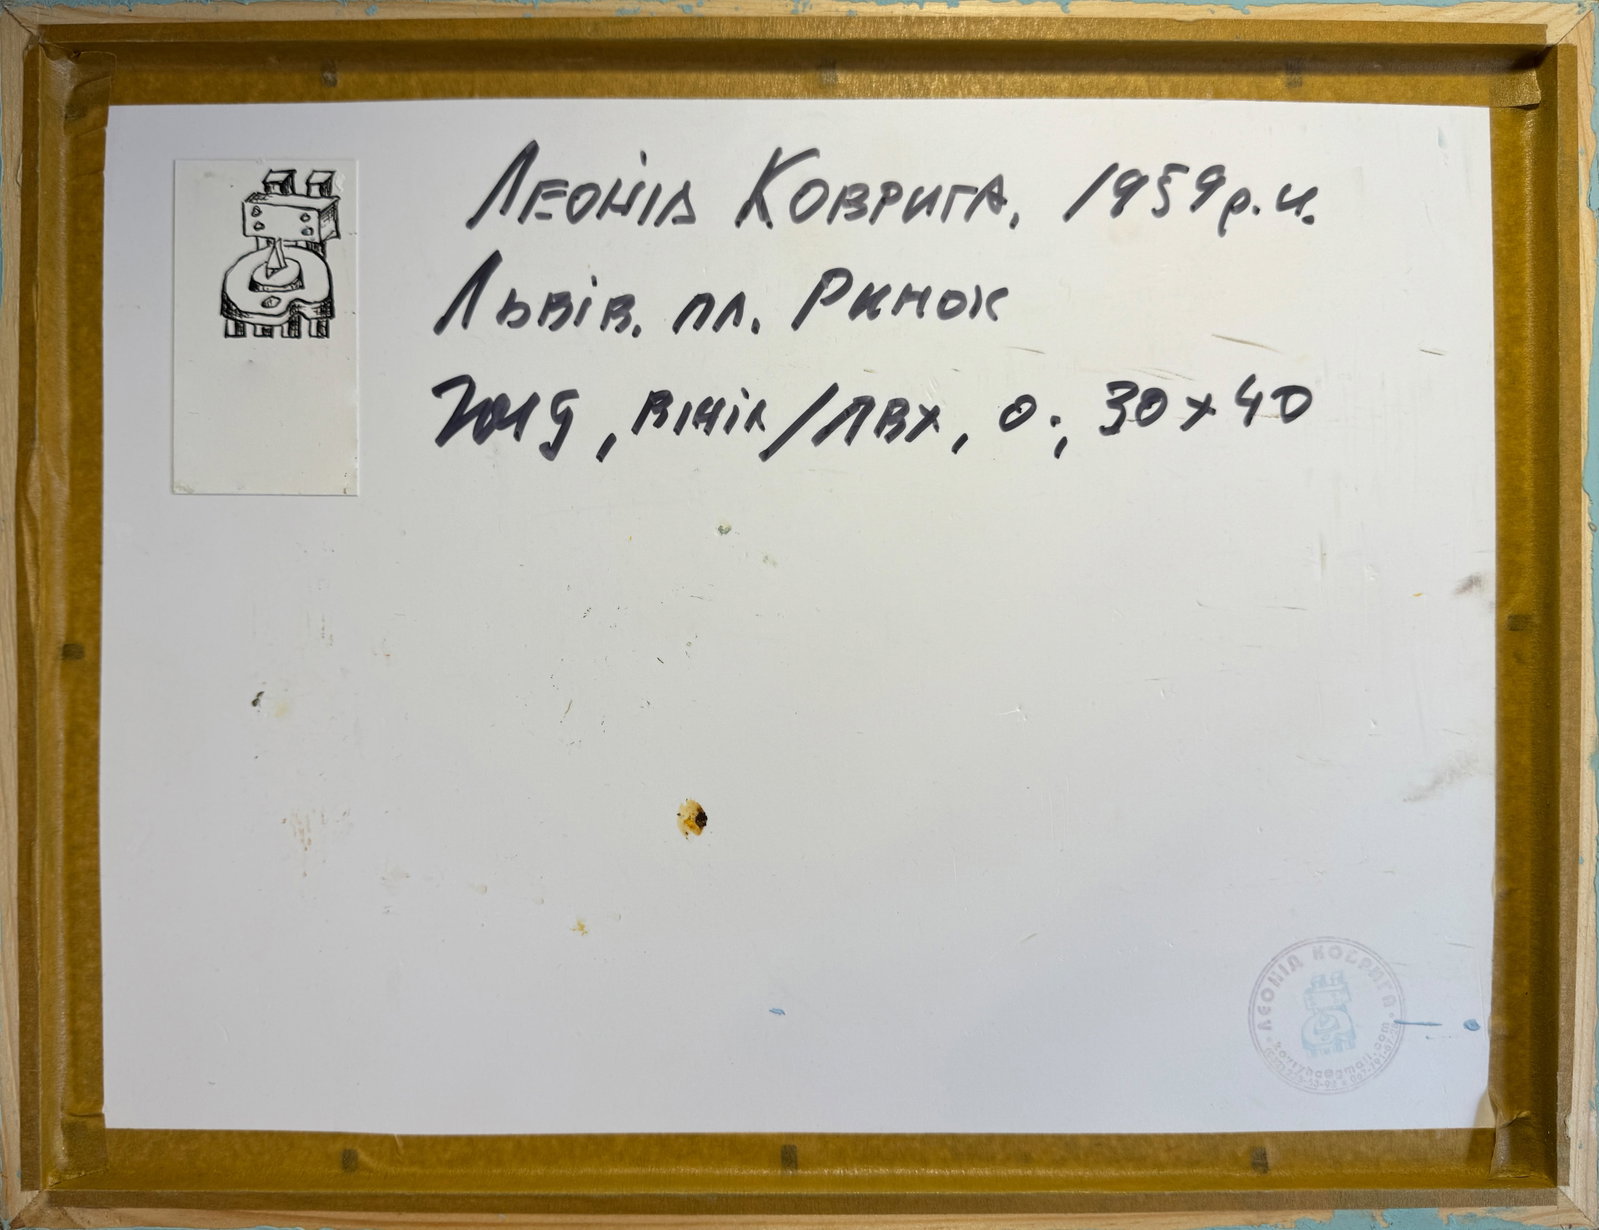 Леонід Коврига, 1959 р.н.
Львів. пл. Ринок
2019, вініл/ПВХ, о., 30х40
ЛЕОНІД КОВРИГА